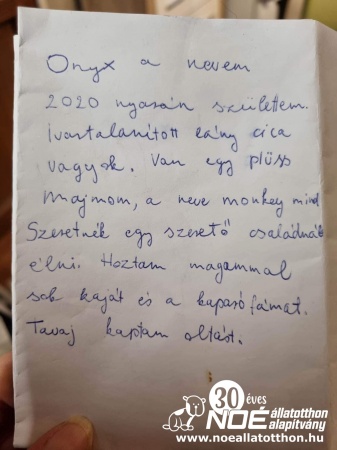 Onyx a nevem
2020 nyarán születtem.
Ivartalanított lány cica
vagyok. Van egy plüss
majmom, a neve monkey mind
Szeretnék egy szerető családnál
élni. Hoztam magammal
sok kaját és a kaparófámat.
Tavaj kaptam oltást.
30 éves
NOÉ állatotthon
alapítvány
www.noeallatotthon.hu